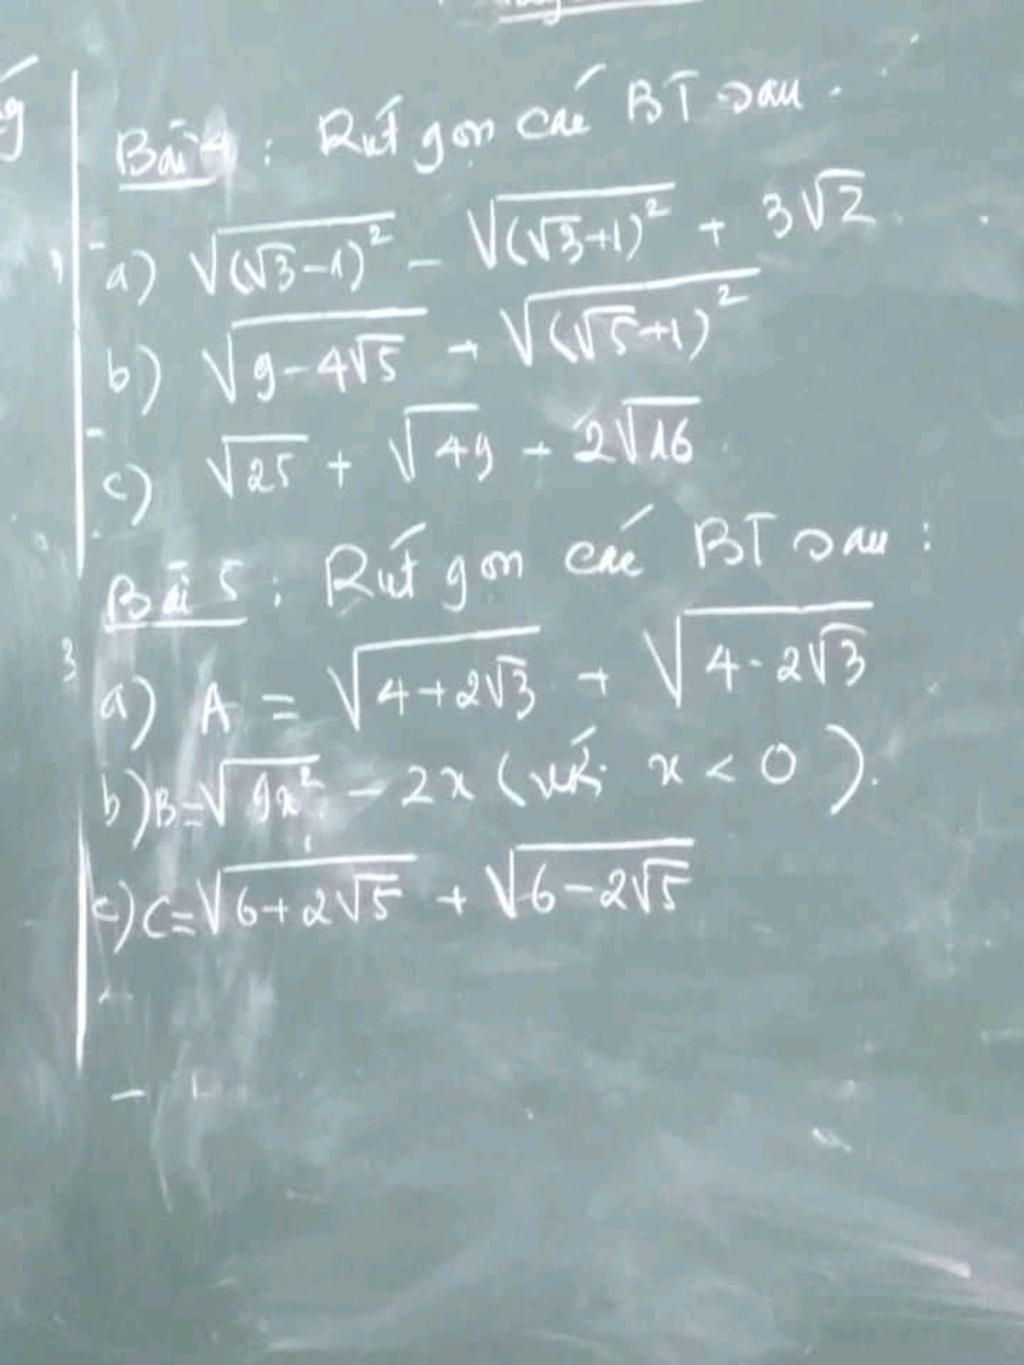 Bài 4 : Rút gọn các BT sau.
a) √(√3-1)² - √(√3+1)² + 3√2
b) √9-4√5 + √(√5+1)²
c) √25 + √49 + 2√16
Bài 5 : Rút gọn các BT sau :
a) A = √4+2√3 + √4-2√3
b) B=√9x² - 2x ( với x < 0 ).
c) C=√6+2√5 + √6-2√5